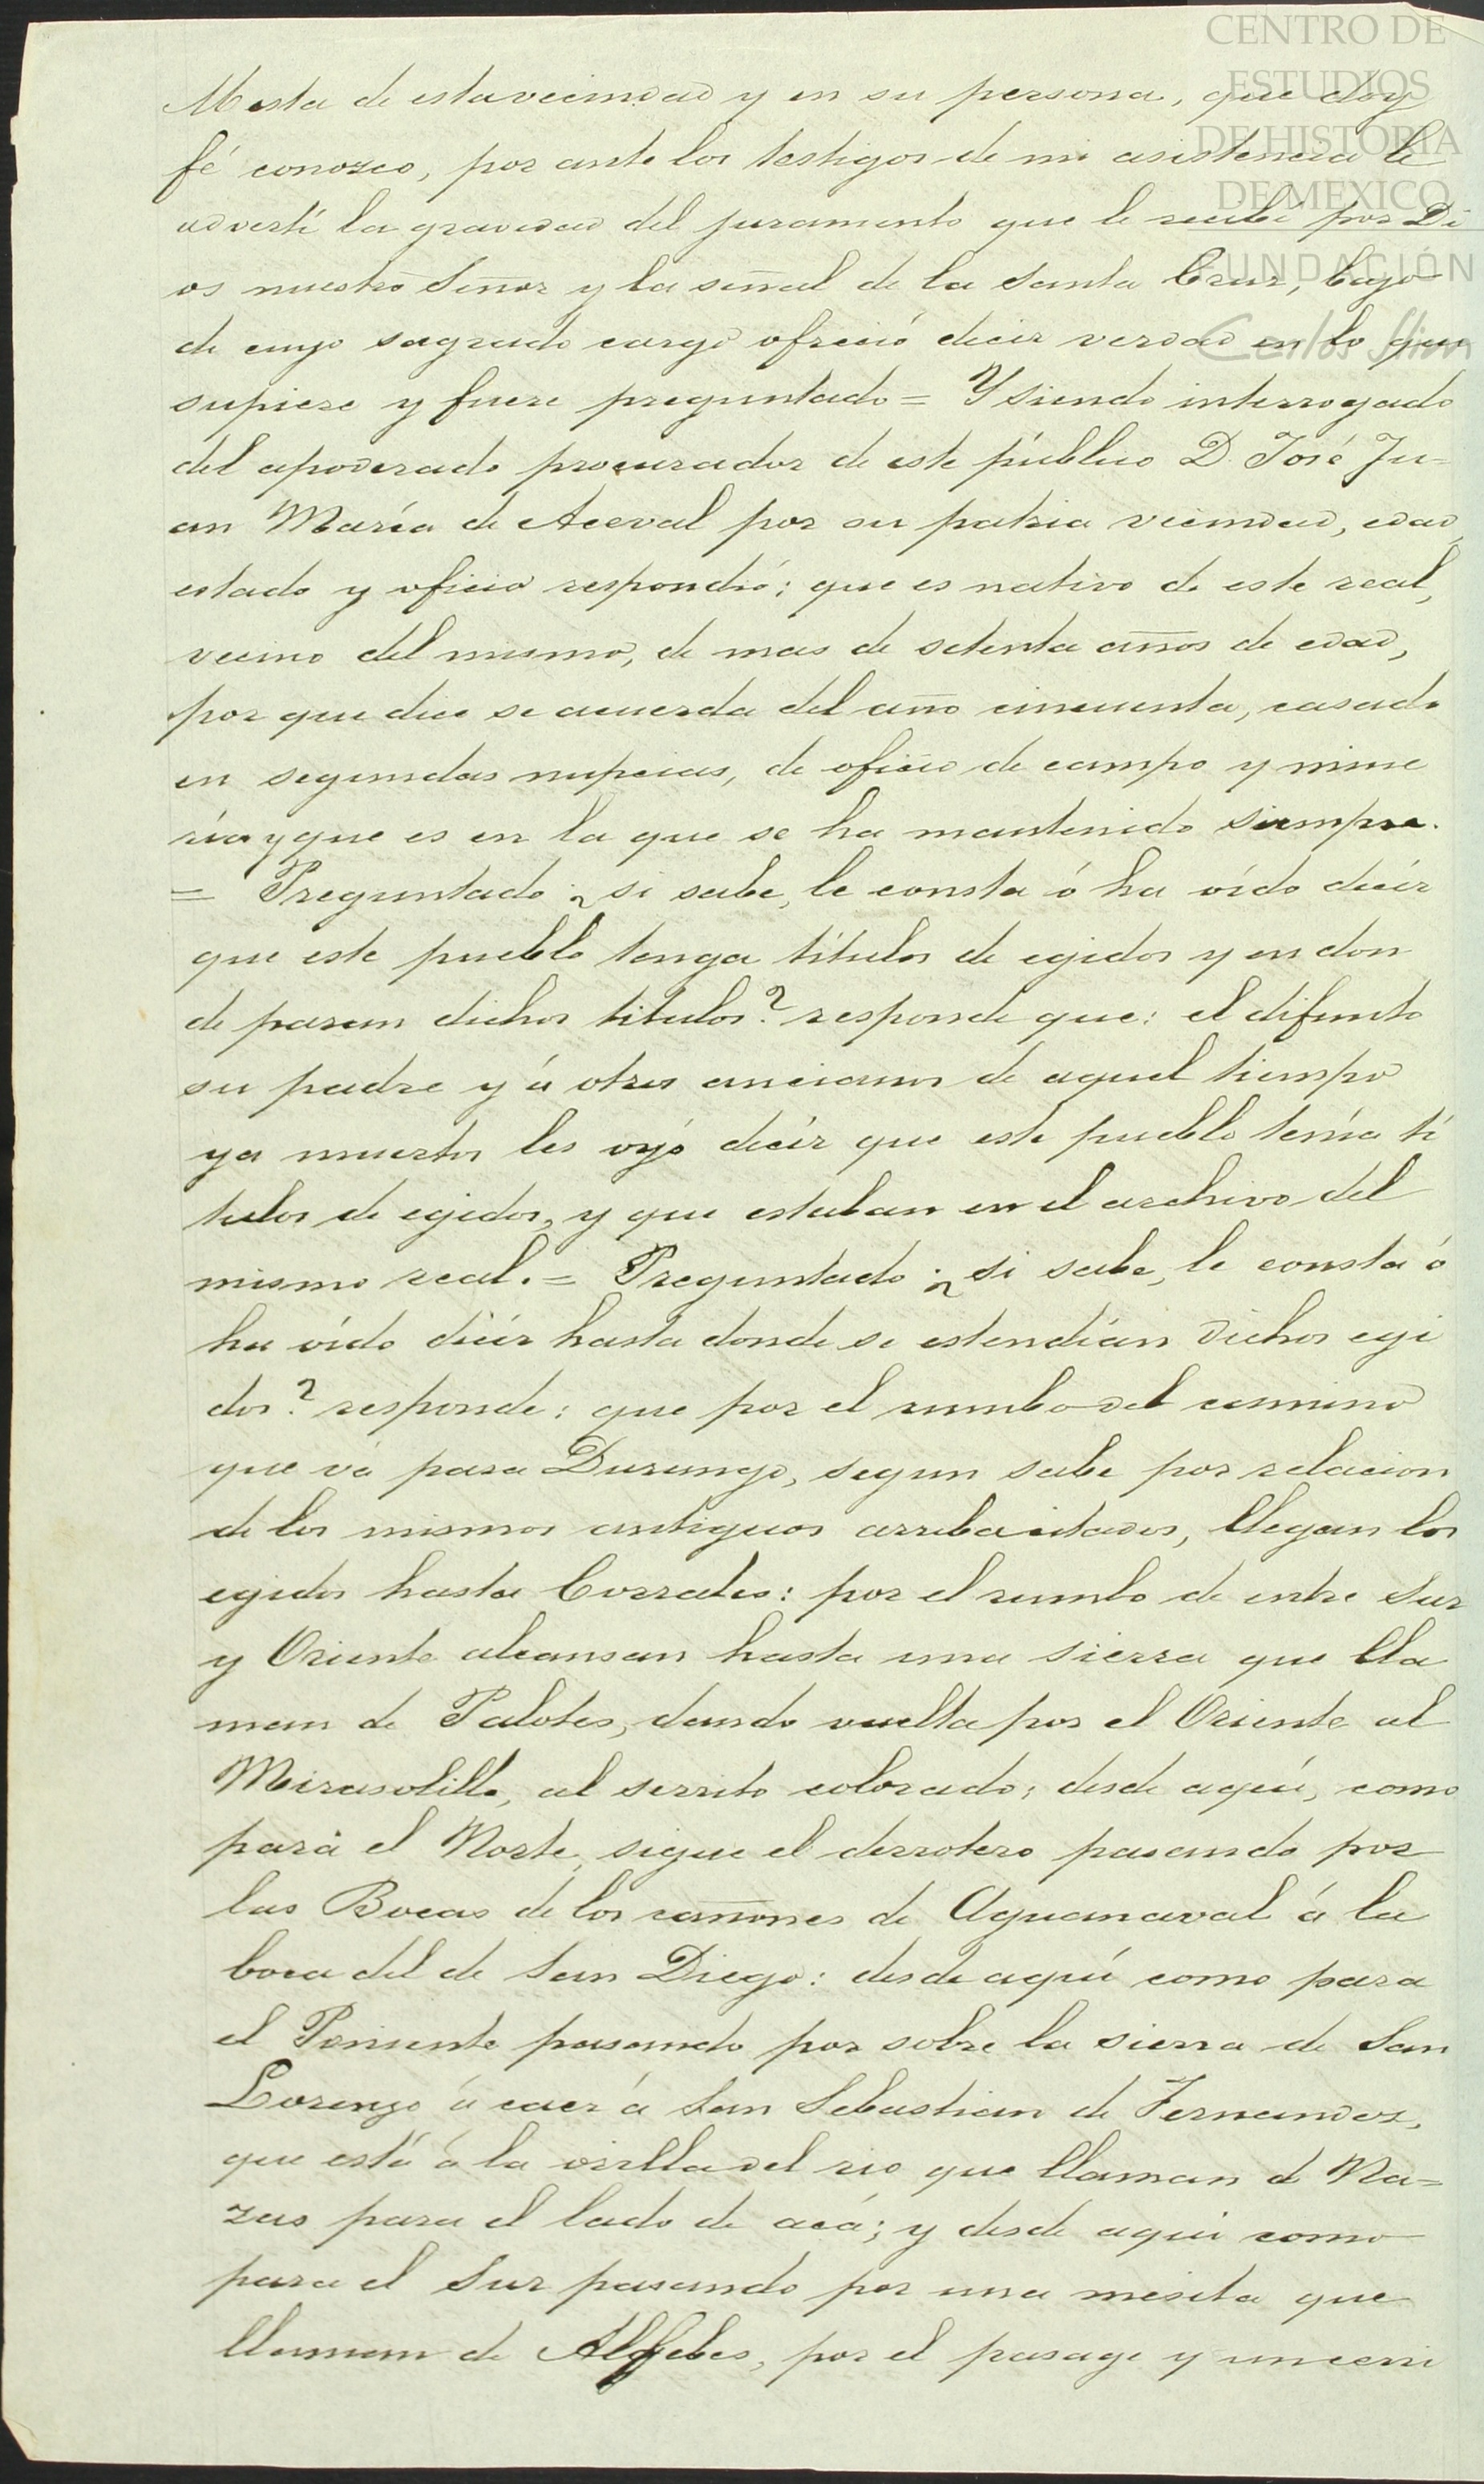 CENTRO DE
ESTUDIOS
DE HISTORIA
DE MEXICO
FUNDACIÓN
Carlos Slim
Mesta de esta vecindad y en su persona, que doy
fé conozco, por ante los testigos de mi asistencia le
advertí la gravedad del juramento que le recibí por Di
os nuestro Señor y la señal de la Santa Cruz, bajo
de cuyo sagrado cargo ofreció decir verdad en lo que
supiere y fuere preguntado = Y siendo interrogado
del apoderado procurador de este público D. José Ju=
an María de Aceval por su patria vecindad, edad,
estado y oficio respondió; que es nativo de este real,
vecino del mismo, de mas de setenta años de edad,
por que dice se acuerda del año cincuenta, casado
en segundas nupcias, de oficio de campo y mine
ría y que es en la que se ha mantenido siempre.
= Preguntado ¿si sabe, le consta ó ha oído decir
que este pueblo tenga títulos de egidos y en don
de paran dichos titulos? responde que: el difunto
su padre y á otros ancianos de aquel tiempo
ya muertos les oyó decir que este pueblo tenía tí
tulos de egidos, y que estaban en el archivo del
mismo real. = Preguntado ¿si sabe, le consta ó
ha oído decir hasta donde se estendían dichos egi
dos? responde: que por el rumbo del camino
que vá para Durango, segun sabe por relacion
de los mismos antiguos arriba citados, llegan los
egidos hasta Corrales: por el rumbo de entre Sur
y Oriente alcansan hasta una sierra que lla
man de Palotes, dando vuelta por el Oriente al
Mirasolillo, al serrito colorado; desde aquí, como
para el Norte, sigue el derrotero pasando por
las Bocas de los cañones de Aguanaval á la
boca del de San Diego: desde aquí como para
el Poniente pasando por sobre la sierra de San
Lorenzo á caer á San Sebastian de Fernandez,
que está á la orilla del rio que llaman de Na=
zas para el lado de acá; y desde aqui como
para el Sur pasando por una mesita que
llaman de por el pasage y un cerri